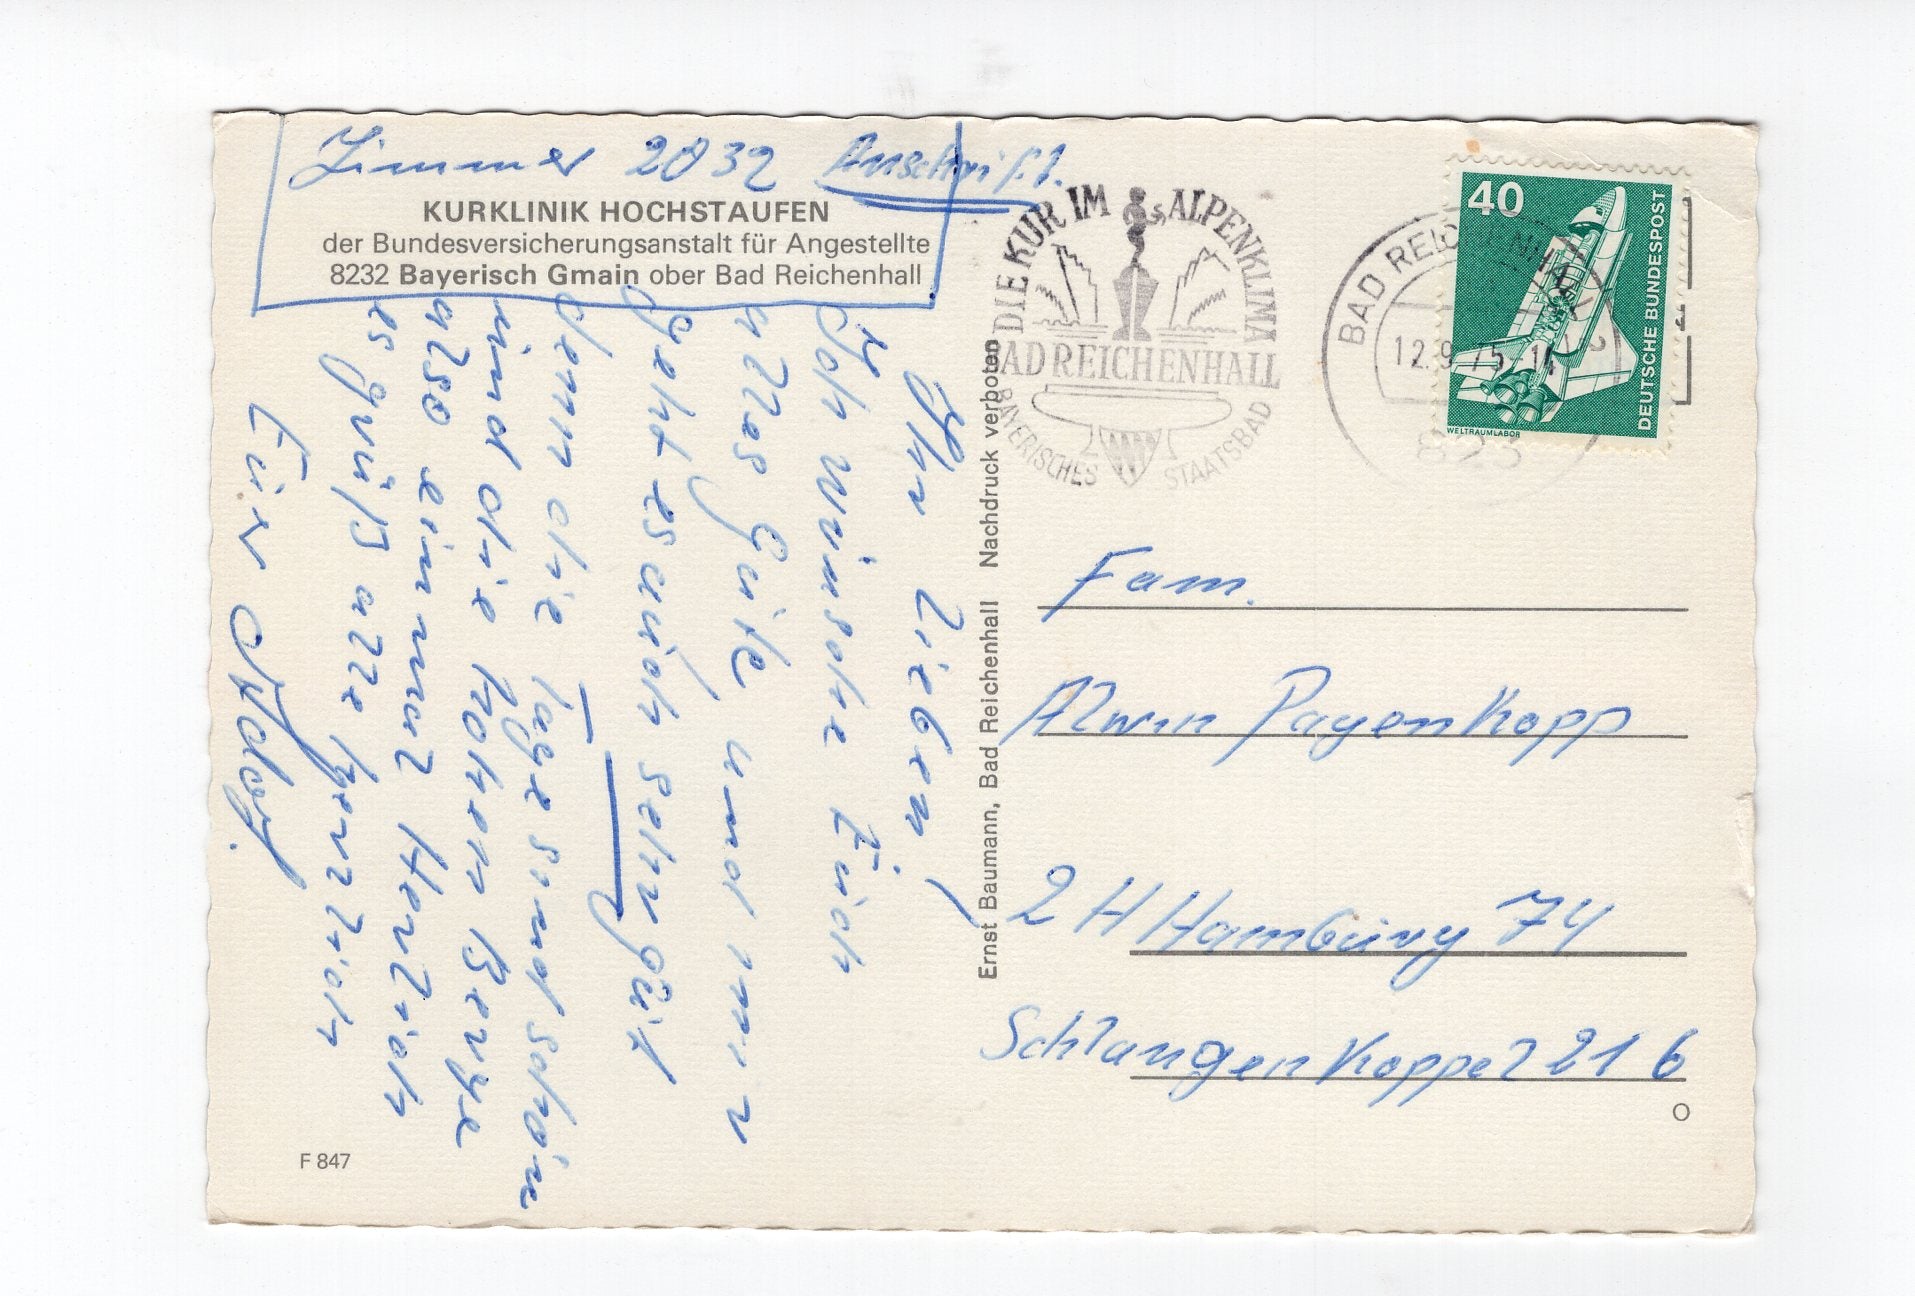 Zimmer 2032 Anschrift.
KURKLINIK HOCHSTAUFEN
der Bundesversicherungsanstalt für Angestellte
8232 Bayerisch Gmain ober Bad Reichenhall
Ihr Lieben!
Ich wünsche Euch
alles Gute, und mir
geht es auch sehr gut
denn die Tage sind schön
und die hohen Berge
also einmal Herzlich
es grüßt alle herzlich
Euer
F 847
Ernst Baumann, Bad Reichenhall Nachdruck verboten
DIE KUR IM ALPENKLIMA
BAD REICHENHALL
BAYERISCHES STAATSBAD
BAD REICHENHALL
12.9.75-14
823
40
DEUTSCHE BUNDESPOST
WELTRAUMLABOR
Fam.
Alwin Payenkopp
2 HHamburg 74
Schlangenkoppel 21 6